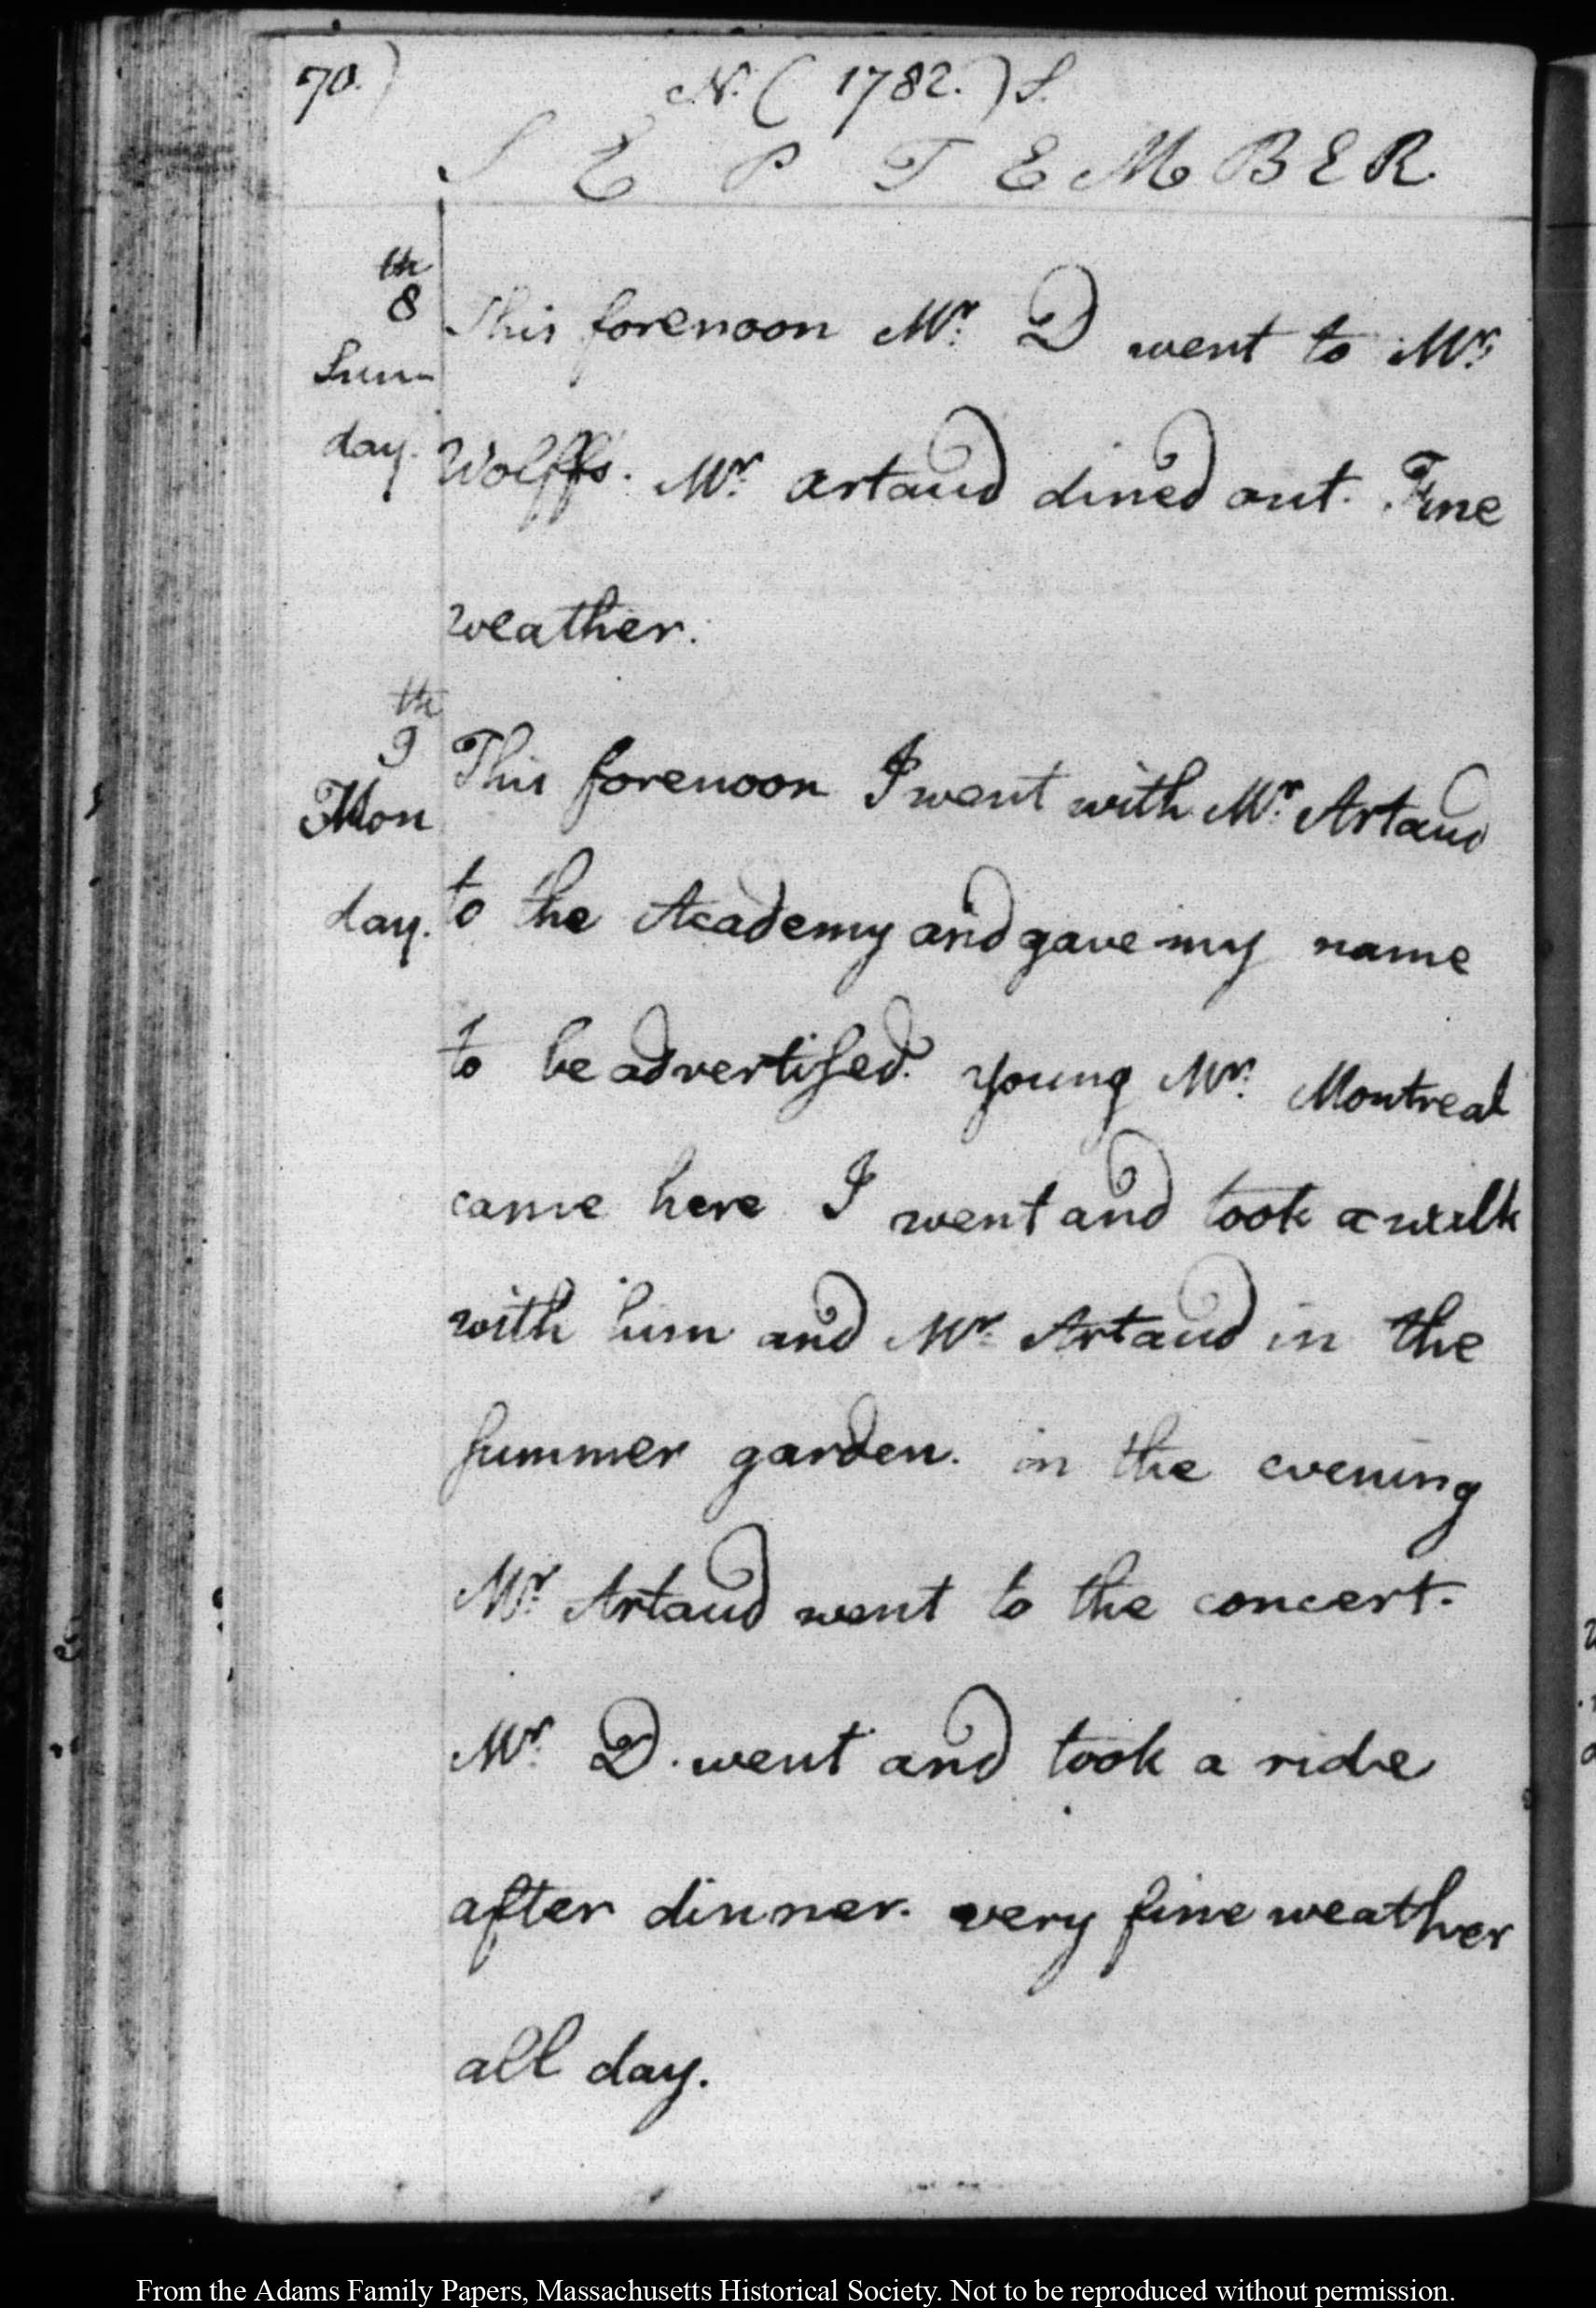 70.) N. (1782.) S.
SEPTEMBER.
th
8 This forenoon Mr. D went to Mr.
Sun-
day. Wolffs. Mr. Artaud dined out. Fine
weather.
th
9 This forenoon I went with Mr. Artaud
Mon
day. to the Academy and gave my name
to be advertised. Young Mr. Montreal
came here I went and took a walk
with him and Mr. Artaud in the
summer garden. in the evening
Mr. Artaud went to the concert.
Mr. D. went and took a ride
after dinner. very fine weather
all day.
From the Adams Family Papers, Massachusetts Historical Society. Not to be reproduced without permission.